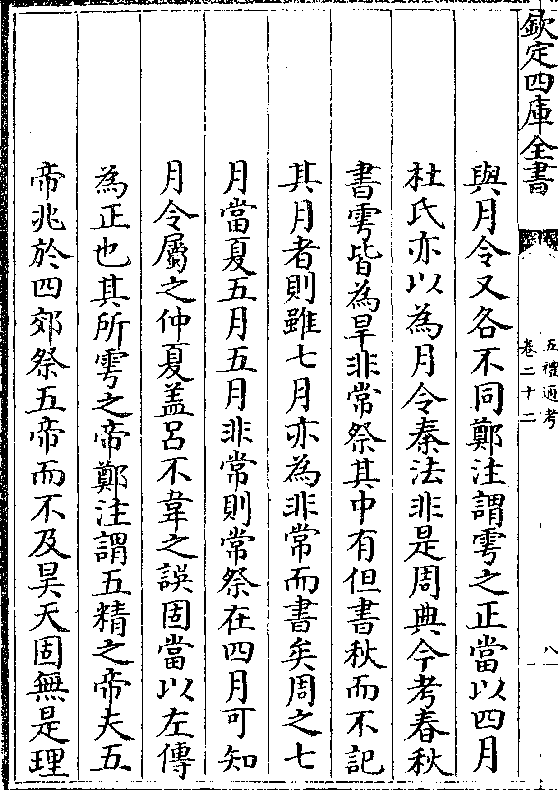 欽定四庫全書
五禮通考
卷二十二
八
與月令又各不同鄭注謂雩之正當以四月
杜氏亦以為月令秦法非是周典今考春秋
書雩皆為旱非常祭其中有但書秋而不記
其月者則雖七月亦為非常而書矣周之七
月當夏五月五月非常則常祭在四月可知
月令屬之仲夏盖呂不韋之誤固當以左傳
為正也其所雩之帝鄭注謂五精之帝夫五
帝兆於四郊祭五帝而不及昊天固無是理